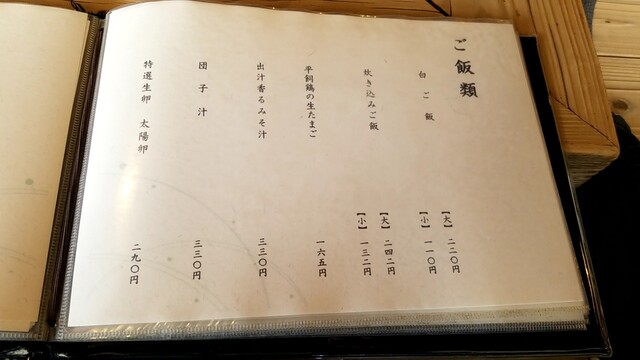 ご飯類
白ご飯
【大】二二〇円
【小】一一〇円
炊き込みご飯
【大】二四二円
【小】一三二円
平飼鶏の生たまご
一六五円
出汁香るみそ汁
三三〇円
団子汁
三三〇円
特選生卵 太陽卵
二九〇円